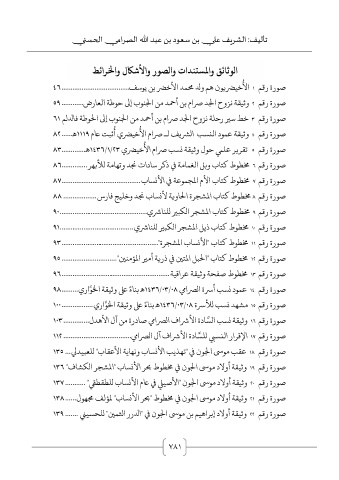 تأليف: الشريف علي بن سعود بن عبد الله الصرامي الحسني
الوثائق والمستندات والصور والأشكال والخرائط
صورة رقم ١ الأخيضريون هم ولد محمد الأخضر بن يوسف ........ ٤٦
صورة رقم ٢ وثيقة نزوح الجد صرام بن أحمد من الجنوب إلى حوطة العارض ........ ٥٩
صورة رقم ٣ خط سير رحلة نزوح الجد صرام بن أحمد من الجنوب إلى الحوطة فالدلم ٦١
صورة رقم ٤ وثيقة عمود النسب الشريف لـ صرام الأخيضري أُثبت عام ١١١٩هـ ........ ٨٢
صورة رقم ٥ تقرير علمي حول وثيقة نسب صرام الأخيضري ١٤٣٦/١/٢٣هـ ........ ٨٣
صورة رقم ٦ مخطوط كتاب وبل الغمامة في ذكر سادات نجد وتهامة للأبهر ........ ٨٦
صورة رقم ٧ مخطوط كتاب الأم المجموعة في الأنساب ........ ٨٧
صورة رقم ٨ مخطوط كتاب المشجرة الحاوية لأنساب نجد وخليج فارس ........ ٨٨
صورة رقم ٩ مخطوط كتاب المشجر الكبير للناشري ........ ٩٠
صورة رقم ١٠ مخطوط كتاب ذيل المشجر الكبير للناشري ........ ٩١
صورة رقم ١١ مخطوط كتاب "الأنساب المشجرة" ........ ٩٣
صورة رقم ١٢ مخطوط كتاب "الحبل المتين في ذرية أمير المؤمنين" ........ ٩٥
صورة رقم ١٣ مخطوط صفحة وثيقة عراقية ........ ٩٦
صورة رقم ١٤ عمود نسب أسرة الصرامي ١٤٣٦/٠٣/٠٨هـ بناءً على وثيقة الحوَّاري ........ ٩٨
صورة رقم ١٥ مشهد نسب للأسرة ١٤٣٦/٠٣/٠٨هـ بناءً على وثيقة الحوَّاري ........ ١٠٠
صورة رقم ١٦ وثيقة نسب السَّادة الأشراف الصرامي صادرة من آل الأهدل ........ ١٠٣
صورة رقم ١٧ الإقرار النسبي للسَّادة الأشراف آل الصرامي ........ ١١٢
صورة رقم ١٨ عقب موسى الجون في "تهذيب الأنساب ونهاية الأعقاب" للعبيدلي ........ ١٣٥
صورة رقم ١٩ وثيقة أولاد موسى الجون في مخطوط بحر الأنساب "المشجر الكشاف" ١٣٦
صورة رقم ٢٠ وثيقة أولاد موسى الجون في "الأصيلي في علم الأنساب للطقطقي" ........ ١٣٧
صورة رقم ٢١ وثيقة أولاد موسى الجون في مخطوط "بحر الأنساب" لمؤلف مجهول ........ ١٣٨
صورة رقم ٢٢ وثيقة أولاد إبراهيم بن موسى الجون في "الدرر الثمين" للحسيني ........ ١٣٩
٧٨١